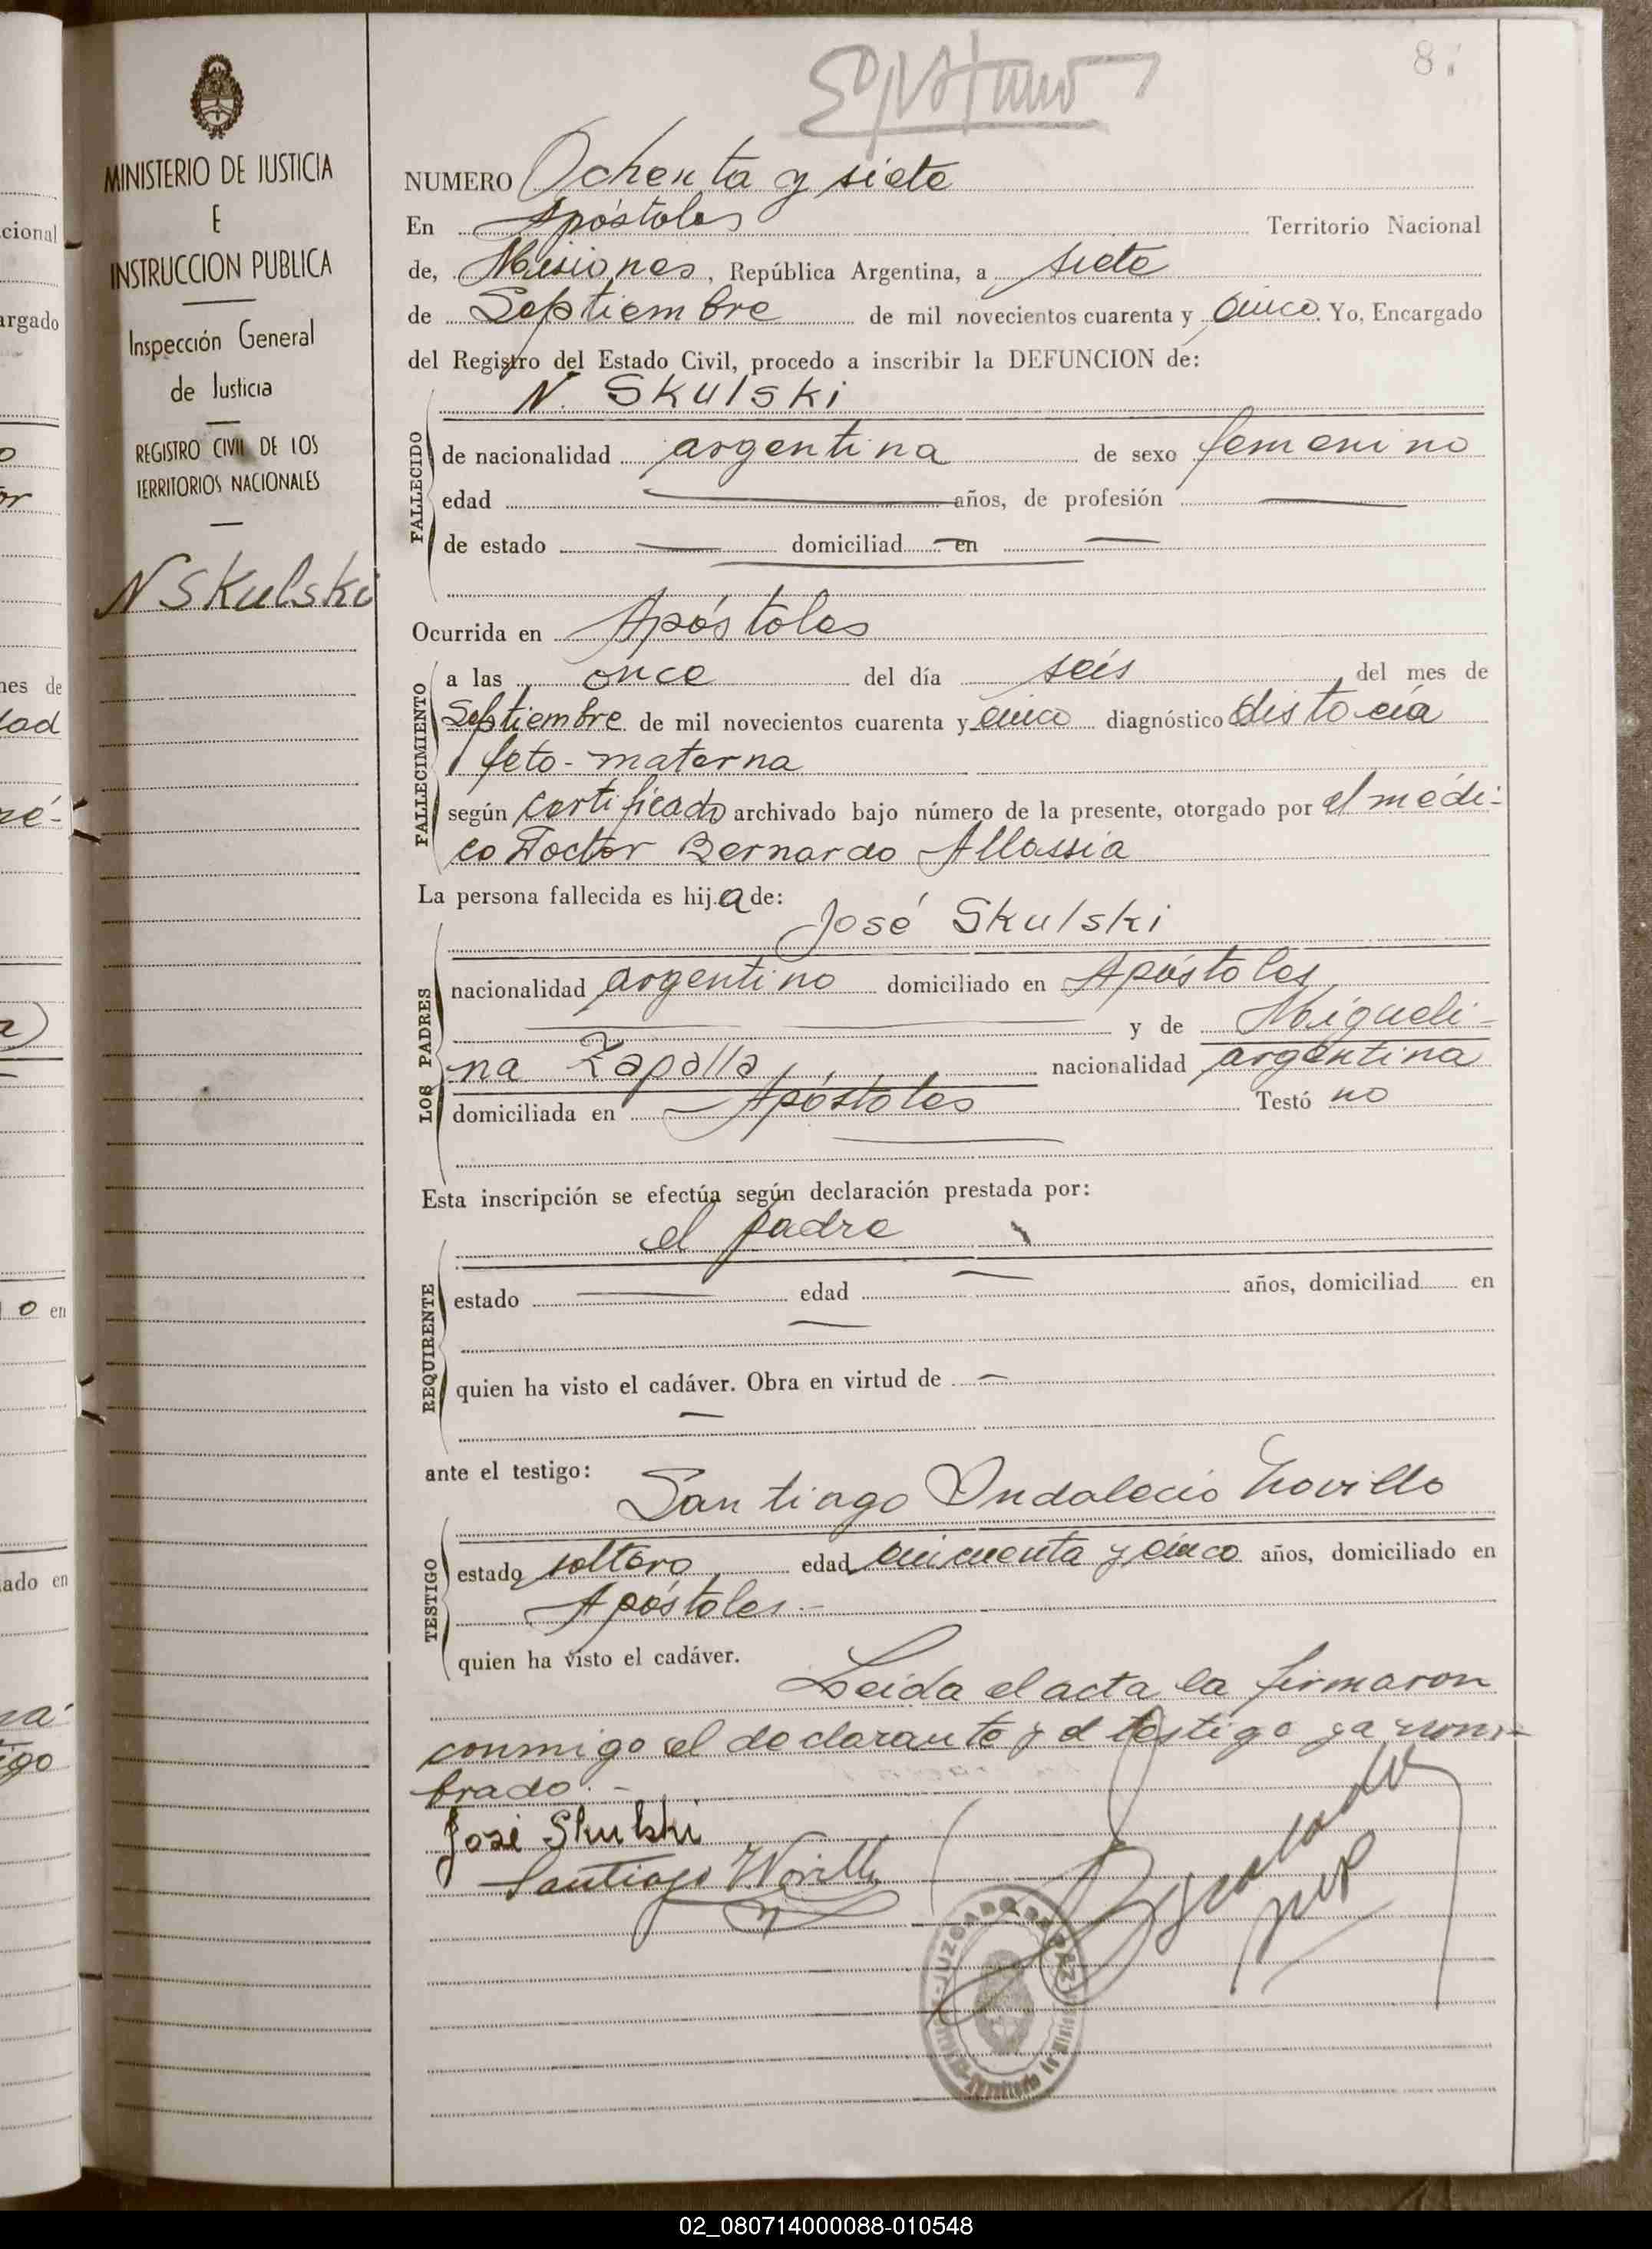 87
MINISTERIO DE JUSTICIA
E
INSTRUCCION PUBLICA
Inspección General
de Justicia
REGISTRO CIVIL DE LOS
TERRITORIOS NACIONALES
N Skulski
NUMERO Ochenta y siete
En Apóstoles Territorio Nacional
de, Misiones, República Argentina, a siete
de Septiembre de mil novecientos cuarenta y cinco. Yo, Encargado
del Registro del Estado Civil, procedo a inscribir la DEFUNCION de:
N. Skulski
FALLECIDO
de nacionalidad argentina de sexo femenino
edad años, de profesión
de estado domiciliad en
Ocurrida en Apóstoles
FALLECIMIENTO
a las once del día seis del mes de
Septiembre de mil novecientos cuarenta y cinco diagnóstico distocia
feto-materna
según certificado archivado bajo número de la presente, otorgado por el médi-
co Doctor Bernardo Allassia
La persona fallecida es hija de:
José Skulski
LOS PADRES
nacionalidad argentino domiciliado en Apóstoles
y de Migueli-
na Zapalla nacionalidad argentina
domiciliada en Apóstoles Testó no
Esta inscripción se efectúa según declaración prestada por:
el padre
REQUIRENTE
estado edad años, domiciliad en
quien ha visto el cadáver. Obra en virtud de
ante el testigo:
Santiago Indalecio Novillo
TESTIGO
estado soltero edad cincuenta y cinco años, domiciliado en
Apóstoles.-
quien ha visto el cadáver.
Leida el acta la firmaron
conmigo el declarante y el testigo ya nom-
brado.-
José Skulski
Santiago Novillo
JUZGADO DE PAZ
cional
argado
nes de
dad
o en
ado en
igo
02_080714000088-010548